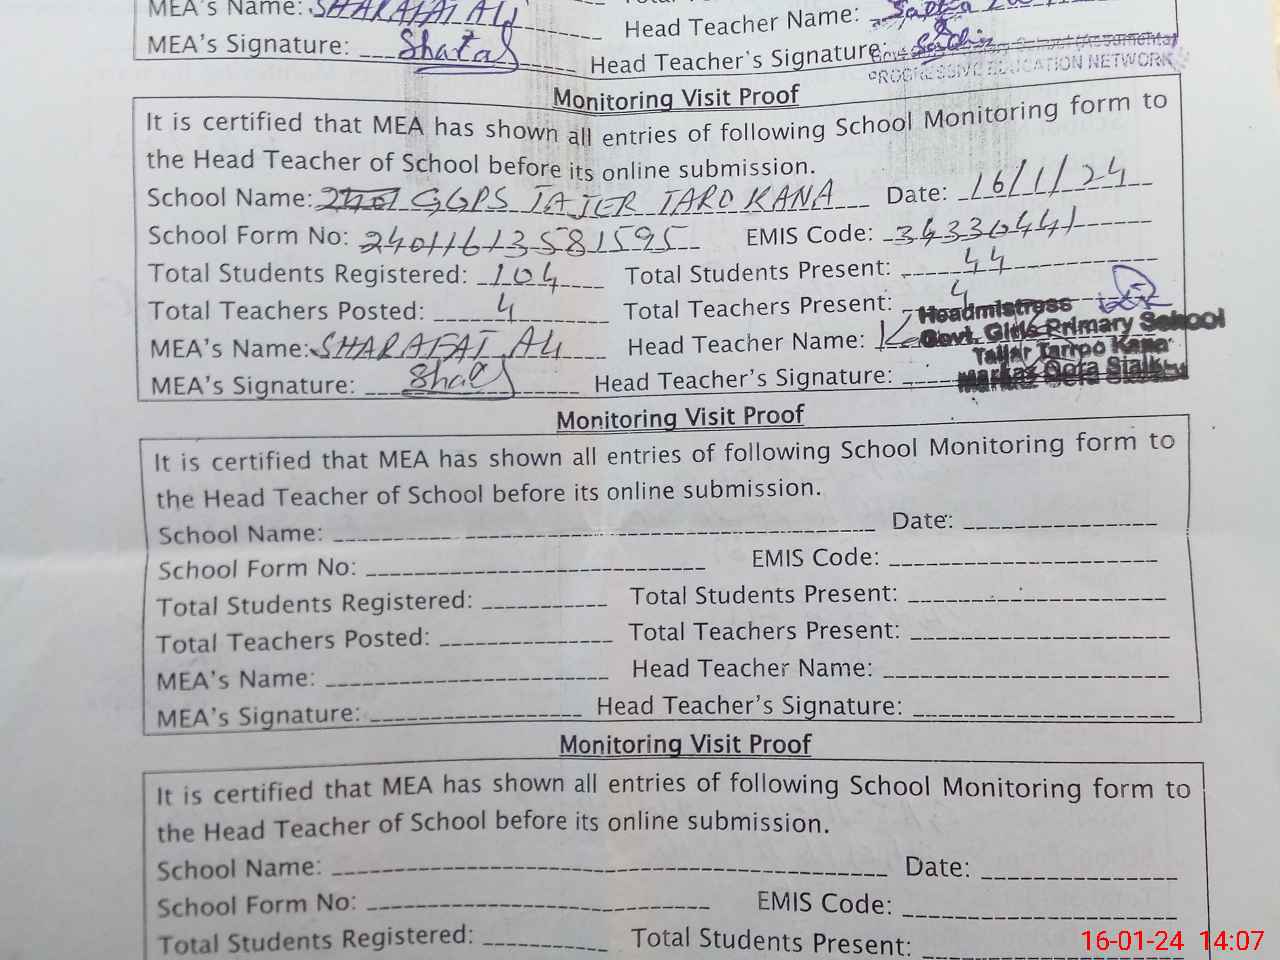 MEA's Name: SHARAFAT ALI
Head Teacher Name:
MEA's Signature: Head Teacher's Signature:
PROGRESSIVE EDUCATION NETWORK
Monitoring Visit Proof
It is certified that MEA has shown all entries of following School Monitoring form to
the Head Teacher of School before its online submission.
School Name: GGPS TAJER TARO KANA Date: 16/1/24
School Form No: 24011613581595 EMIS Code: 34330441
Total Students Registered: 104 Total Students Present: 44
Total Teachers Posted: 4 Total Teachers Present: 4
MEA's Name: SHARAFAT ALI Head Teacher Name:
Headmistress
Govt. Girls Primary School
MEA's Signature: Head Teacher's Signature:
Monitoring Visit Proof
It is certified that MEA has shown all entries of following School Monitoring form to
the Head Teacher of School before its online submission.
School Name: Date:
School Form No: EMIS Code:
Total Students Registered: Total Students Present:
Total Teachers Posted: Total Teachers Present:
MEA's Name: Head Teacher Name:
MEA's Signature: Head Teacher's Signature:
Monitoring Visit Proof
It is certified that MEA has shown all entries of following School Monitoring form to
the Head Teacher of School before its online submission.
School Name: Date:
School Form No: EMIS Code:
Total Students Registered: Total Students Present:
16-01-24 14:07